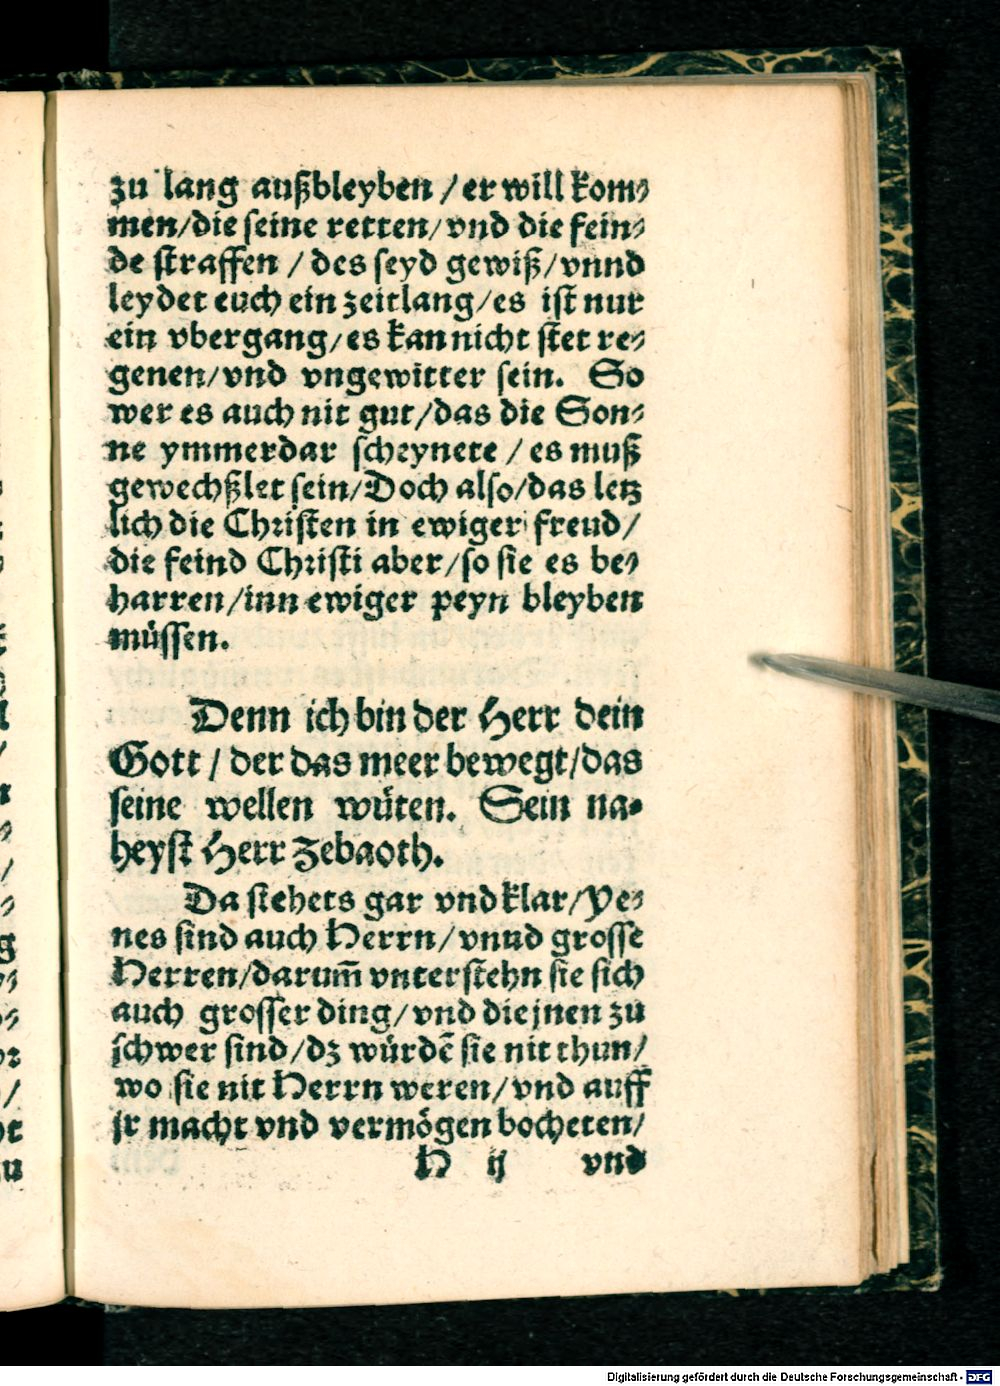 zu lang außbleyben / er will kom⸗
men/die seine retten/vnd die fein⸗
de straffen / des seyd gewiß/vnnd
leydet euch ein zeitlang/es ist nur
ein vbergang/es kan nicht stet re⸗
genen/vnd vngewitter sein. So
wer es auch nit gut/das die Son⸗
ne ymmerdar scheynete / es muß
gewechßlet sein/Doch also/das letz
lich die Christen in ewiger freud/
die feind Christi aber/so sie es be⸗
harren/inn ewiger peyn bleyben
müssen.
Denn ich bin der Herr dein
Gott / der das meer bewegt/das
seine wellen wüten. Sein na⸗
heyst Herr Zebaoth.
Da stehets gar vnd klar/Ye⸗
nes sind auch Herrn/vnnd grosse
Herren/darum̃ vnterstehn sie sich
auch grosser ding/vnd die jnen zu
schwer sind/dz würdẽ sie nit thun/
wo sie nit Herrn weren/vnd auff
jr macht vnd vermögen bocheten/
H ij vnd
Digitalisierung gefördert durch die Deutsche Forschungsgemeinschaft - DFG